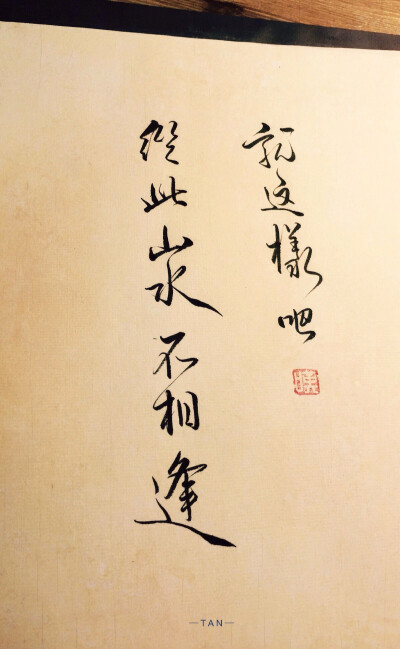 就这樣吧
從此山水不相逢
—TAN—